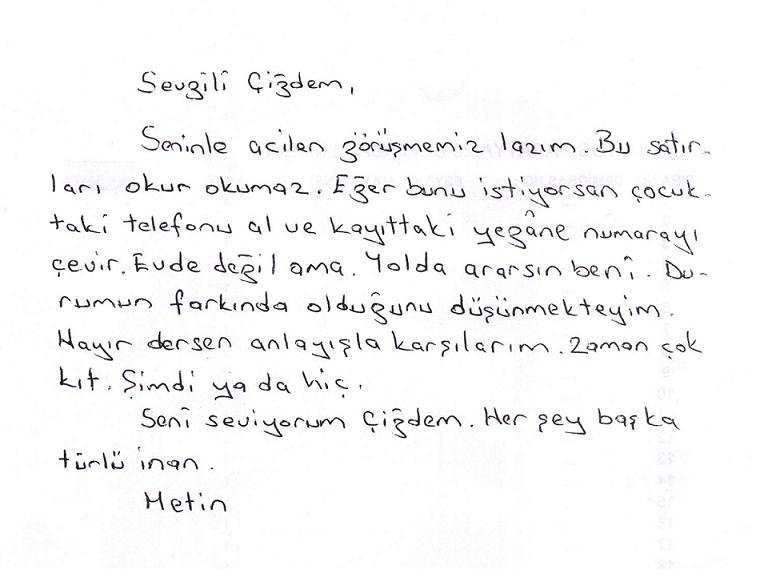 Sevgili Çiğdem,
Seninle acilen görüşmemiz lazım. Bu satır-
ları okur okumaz. Eğer bunu istiyorsan çocuk-
taki telefonu al ve kayıttaki yegâne numarayı
çevir. Evde değil ama. Yolda ararsın beni. Du-
rumun farkında olduğunu düşünmekteyim.
Hayır dersen anlayışla karşılarım. Zaman çok
kıt. Şimdi ya da hiç.
Seni seviyorum Çiğdem. Her şey başka
türlü inan.
Metin